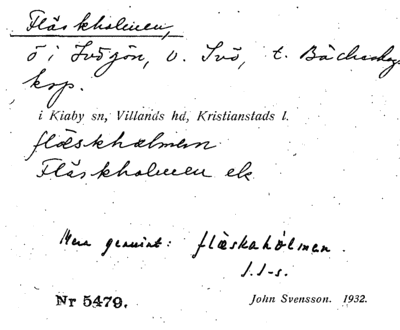 Fläskholmen,
ö i Ivösjön, v. Ivö, t. Bäckaskogs
ksp.
i Kiaby sn, Villands hd, Kristianstads l.
flæskhælmen
Fläskholmen ek
Mera genuint: flæskahólmen.
J. S-s.
Nr 5479. John Svensson. 1932.